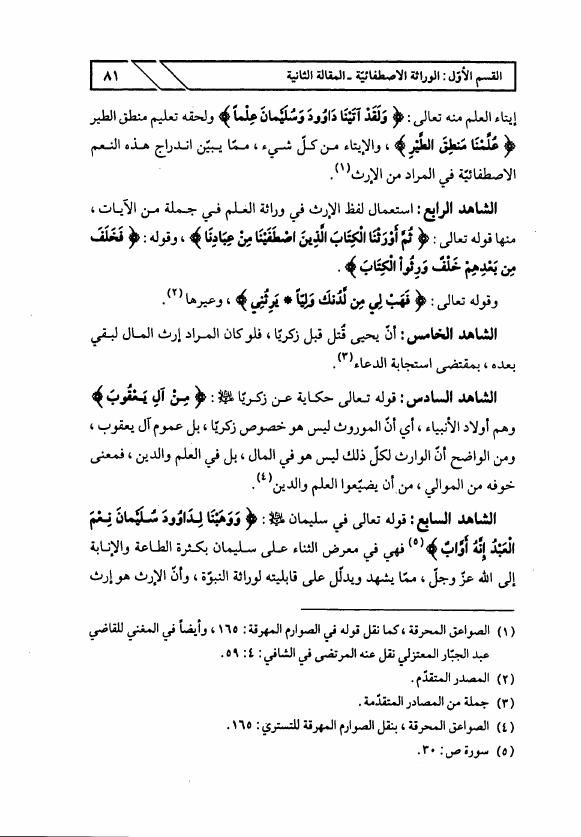 القسم الأوّل : الوراثة الاصطفائيّة ـ المقالة الثانية ٨١
إيتاء العلم منه تعالى : ﴿ وَلَقَدْ آتَيْنَا دَاوُودَ وَسُلَيْمَانَ عِلْماً ﴾ ولحقه تعليم منطق الطير
﴿ عُلِّمْنَا مَنطِقَ الطَّيْرِ ﴾ ، والإيتاء مـن كـلّ شـيء ، مـمّا يـبيّن انـدراج هـذه النـعم
الاصطفائيّة في المراد من الإرث(١).
الشاهد الرابع : استعمال لفظ الإرث في وراثة العلم فـي جـملة مـن الآيـات ،
منها قوله تعالى : ﴿ ثُمَّ أَوْرَثْنَا الْكِتَابَ الَّذِينَ اصْطَفَيْنَا مِنْ عِبَادِنَا ﴾ ، وقوله : ﴿ فَخَلَفَ
مِن بَعْدِهِمْ خَلْفٌ وَرِثُواْ الْكِتَابَ ﴾ .
وقوله تعالى : ﴿ فَهَبْ لِي مِن لَّدُنكَ وَلِيّاً * يَرِثُنِي ﴾ ، وعيرها(٢).
الشاهد الخامس : أنّ يحيى قُتل قبل زكريّا ، فلو كان المراد إرث المال لبقي
بعده ، بمقتضى استجابة الدعاء(٣).
الشاهد السادس : قوله تـعالى حكـاية عـن زكـريّا ﷺ : ﴿ مِـنْ آلِ يَـعْقُوبَ ﴾
وهم أولاد الأنبياء ، أي أنّ الموروث ليس هو خصوص زكريّا ، بل عموم آل يعقوب ،
ومن الواضح أنّ الوارث لكلّ ذلك ليس هو في المال ، بل في العلم والدين ، فمعنى
خوفه من الموالي ، من أن يضيّعوا العلم والدين(٤).
الشاهد السابع : قوله تعالى في سليمان ﷺ : ﴿ وَوَهَبْنَا لِـدَاوُودَ سُـلَيْمَانَ نِـعْمَ
الْعَبْدُ إِنَّهُ أَوَّابٌ ﴾(٥) فهي في معرض الثناء عـلـى سـليمان بكـثرة الطـاعة والإنـابة
إلى الله عزّ وجلّ ، ممّا يشهد ويدلّل على قابليته لوراثة النبوّة ، وأنّ الإرث هو إرث
(١) الصواعق المحرقة ، كما نقل قوله في الصوارم المهرقة : ١٦٥ ، وأيضاً في المغني للقاضي
عبد الجبّار المعتزلي نقل عنه المرتضى في الشافي : ٤ : ٥٩.
(٢) المصدر المتقدّم.
(٣) جملة من المصادر المتقدّمة .
(٤) الصواعق المحرقة ، بنقل الصوارم المهرقة للتستري : ١٦٥.
(٥) سورة ص : ٣٠.